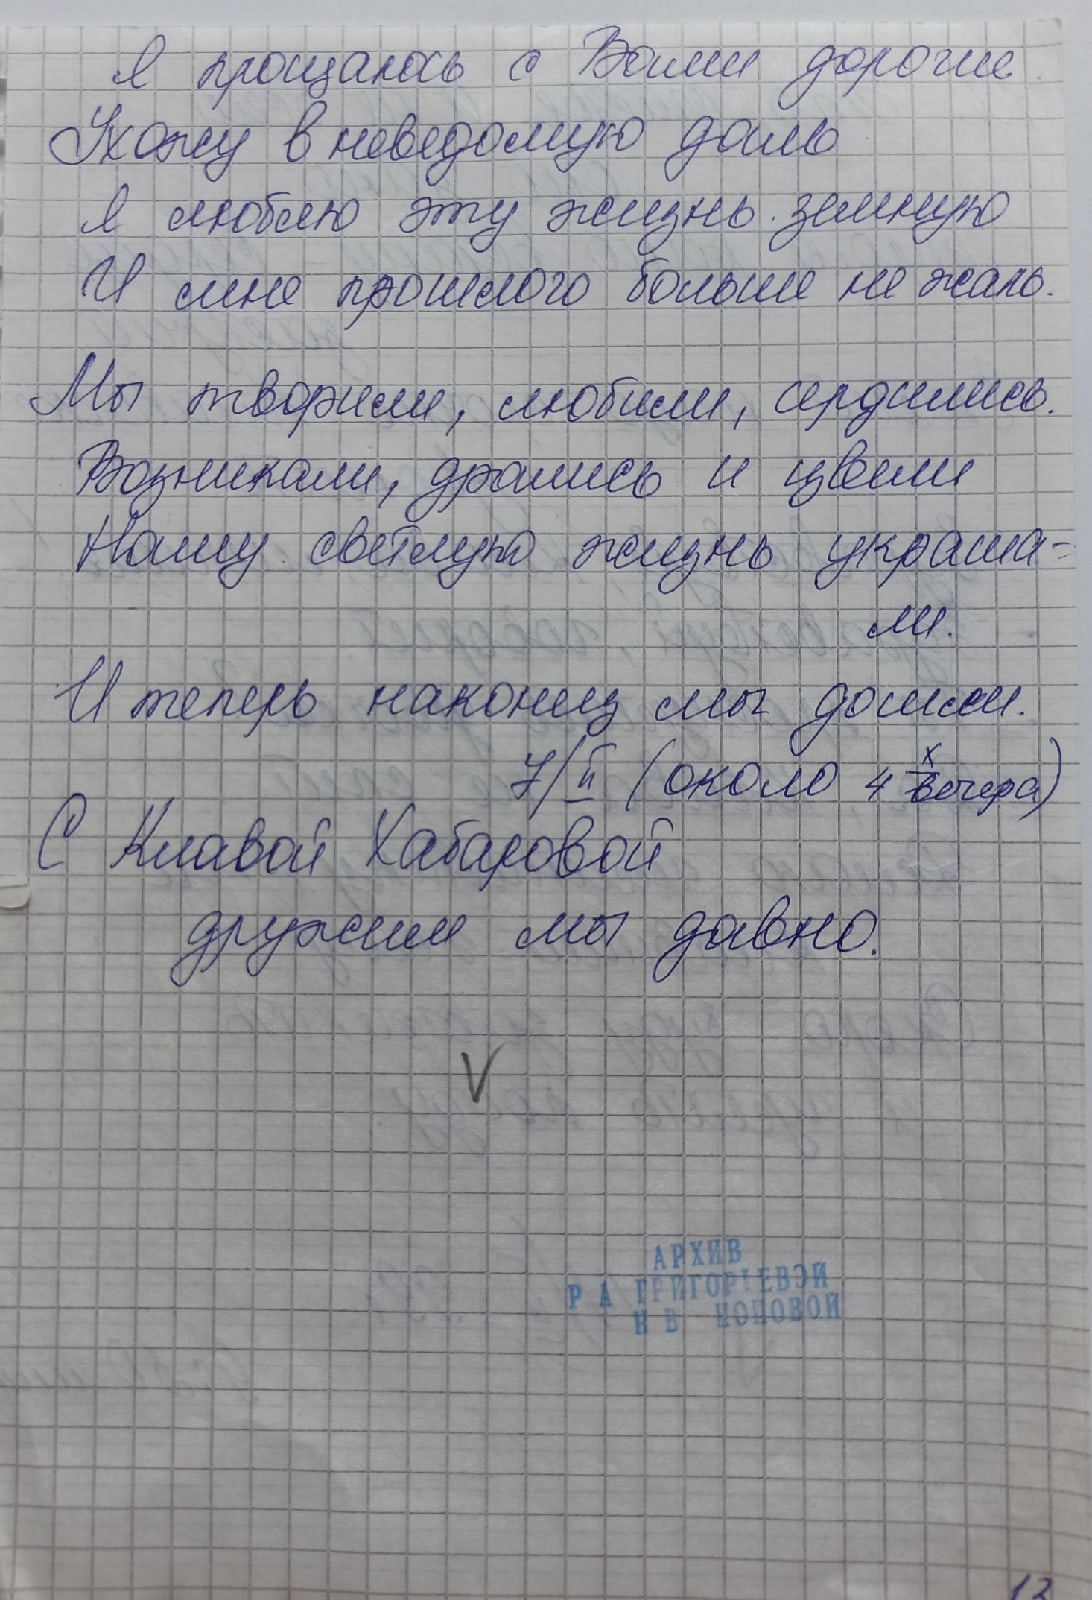 Я прощаюсь с Вами дорогие
Ухожу в неведомую даль
Я люблю эту жизнь земную
И мне прошлого больше не жаль.
Мы творили, любили, сердились.
Возникали, дрались и цвели
Нашу светлую жизнь украша-
ли.
И теперь наконец мы дошли.
7/II (около 4х вечера)
С Клавой Хабаровой
дружили мы давно.
V
АРХИВ
Р А ГРИГОРЬЕВОЙ
Н В ИОНОВОЙ
12